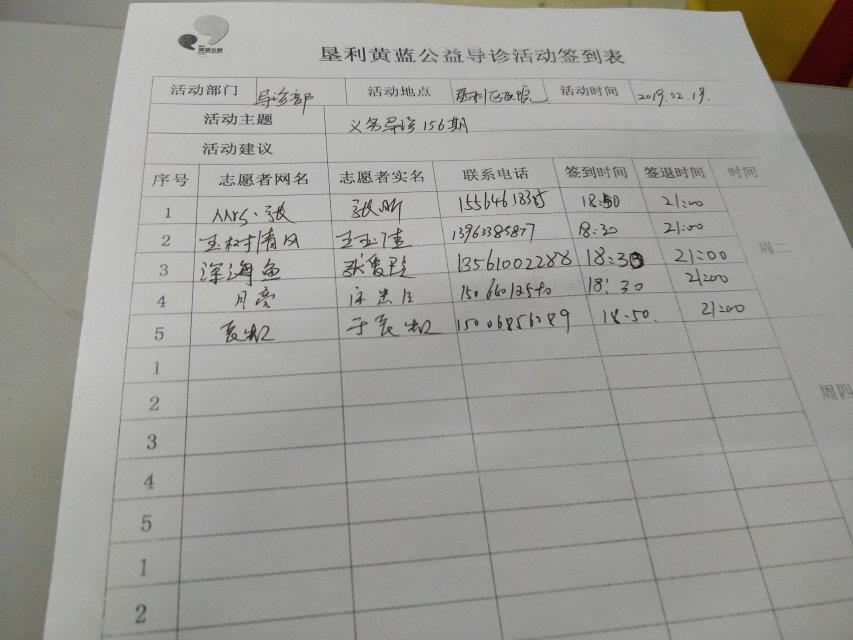 黄蓝公益
垦利黄蓝公益导诊活动签到表
活动部门 导诊部 活动地点 活动时间 2019.02.19.
活动主题 义务导诊156期
活动建议
序号 志愿者网名 志愿者实名 联系电话 签到时间 签退时间 时间
1 Mrs·张 张昕 18:50 21:00
2 玉树清风 13963385877 18:30 21:00
3 深海鱼 13561002288 18:30 21:00 周二
4 月亮 18:30 21:00
5 18:50. 21:00
1
2 周四
3
4
5
1
2